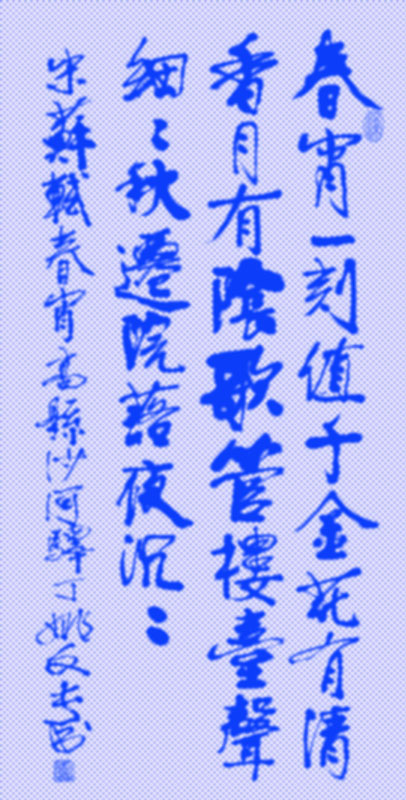 春宵一刻值千金花有清
香月有陰歌管樓臺聲
細〻秋遷院落夜沉〻
宋蘇軾春宵高縣沙河驛丁姚